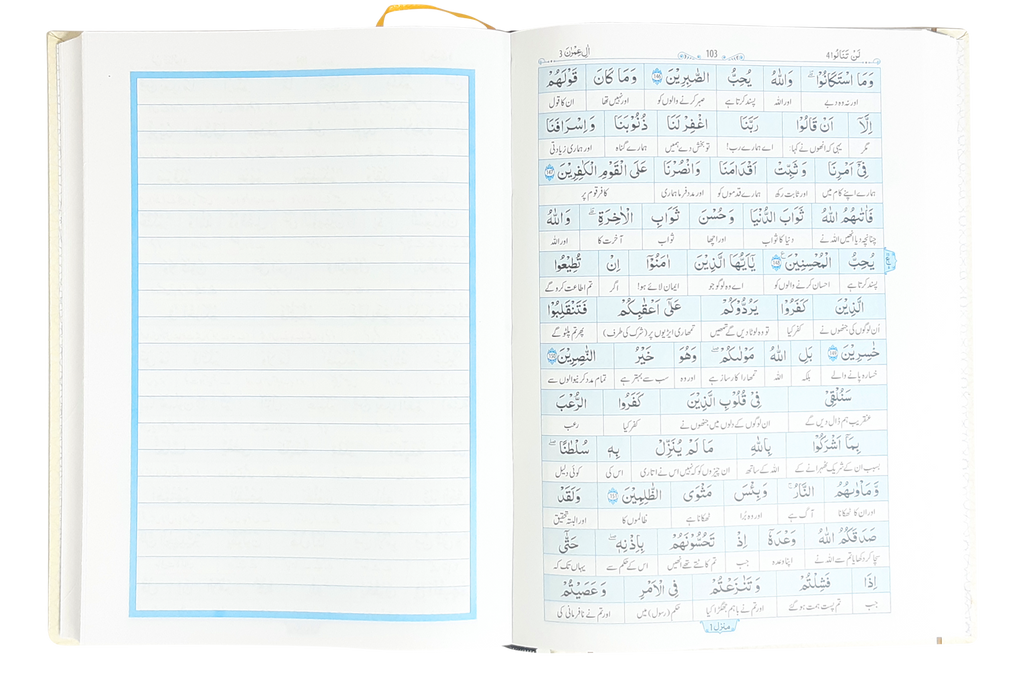 لَنْ تَنَالُوا 4 103 اٰلِ عِمْرٰن 3
وَمَا اسْتَكَانُوْا ؕ وَاللّٰهُ يُحِبُّ الصّٰبِرِيْنَ ۝۱۴۶ وَمَا كَانَ قَوْلَهُمْ
اور نہ وہ دبے اور اللہ پسند کرتا ہے صبر کرنے والوں کو اور نہیں تھا ان کا قول
اِلَّاۤ اَنْ قَالُوْا رَبَّنَا اغْفِرْ لَنَا ذُنُوْبَنَا وَاِسْرَافَنَا
مگر یہی کہ انھوں نے کہا: اے ہمارے رب! تو بخش دے ہمیں ہمارے گناہ اور ہماری زیادتی
فِيْۤ اَمْرِنَا وَثَبِّتْ اَقْدَامَنَا وَانْصُرْنَا عَلَى الْقَوْمِ الْكٰفِرِيْنَ ۝۱۴۷
ہمارے اپنے کام میں اور ثابت رکھ ہمارے قدموں کو اور مدد فرما ہماری کافر قوم پر
فَاٰتٰىهُمُ اللّٰهُ ثَوَابَ الدُّنْيَا وَحُسْنَ ثَوَابِ الْاٰخِرَةِ ؕ وَاللّٰهُ
چنانچہ دیا انھیں اللہ نے دنیا کا ثواب اور اچھا ثواب آخرت کا اور اللہ
يُحِبُّ الْمُحْسِنِيْنَ ۝۱۴۸ يٰۤاَيُّهَا الَّذِيْنَ اٰمَنُوْۤا اِنْ تُطِيْعُوا
پسند کرتا ہے احسان کرنے والوں کو اے وہ لوگو جو ایمان لائے ہو! اگر تم اطاعت کرو گے
الَّذِيْنَ كَفَرُوْا يَرُدُّوْكُمْ عَلٰۤى اَعْقَابِكُمْ فَتَنْقَلِبُوْا
اُن لوگوں کی جنھوں نے کفر کیا تو وہ لوٹا دیں گے تمھیں تمھاری ایڑیوں پر (شرک کی طرف) پھر تم پلٹو گے
خٰسِرِيْنَ ۝۱۴۹ بَلِ اللّٰهُ مَوْلٰىكُمْ ۚ وَهُوَ خَيْرُ النّٰصِرِيْنَ ۝۱۵۰
خسارہ پانے والے بلکہ اللہ تمھارا کارساز ہے اور وہ سب سے بہتر ہے تمام مدد کرنیوالوں سے
سَنُلْقِيْ فِيْ قُلُوْبِ الَّذِيْنَ كَفَرُوا الرُّعْبَ
عنقریب ہم ڈال دیں گے ان لوگوں کے دلوں میں جنھوں نے کفر کیا رعب
بِمَاۤ اَشْرَكُوْا بِاللّٰهِ مَا لَمْ يُنَزِّلْ بِهٖ سُلْطٰنًا ۚ
بسبب ان کے شریک ٹھہرانے کے اللہ کے ساتھ ان چیزوں کو کہ نہیں اس نے اتاری اس کی کوئی دلیل
وَمَاْوٰىهُمُ النَّارُ ؕ وَبِئْسَ مَثْوَى الظّٰلِمِيْنَ ۝۱۵۱ وَلَقَدْ
اور ان کا ٹھکانا آگ ہے اور وہ بُرا ٹھکانا ہے ظالموں کا اور البتہ تحقیق
صَدَقَكُمُ اللّٰهُ وَعْدَهٗۤ اِذْ تَحُسُّوْنَهُمْ بِاِذْنِهٖ ۚ حَتّٰۤى
سچا کر دکھایا تم سے اللہ نے اپنا وعدہ جب تم کاٹتے تھے انھیں اس کے حکم سے یہاں تک کہ
اِذَا فَشِلْتُمْ وَتَنَازَعْتُمْ فِي الْاَمْرِ وَعَصَيْتُمْ
جب تم پست ہمت ہو گئے اور تم نے باہم جھگڑا کیا حکم (رسول) میں اور تم نے نافرمانی کی
منزل 1